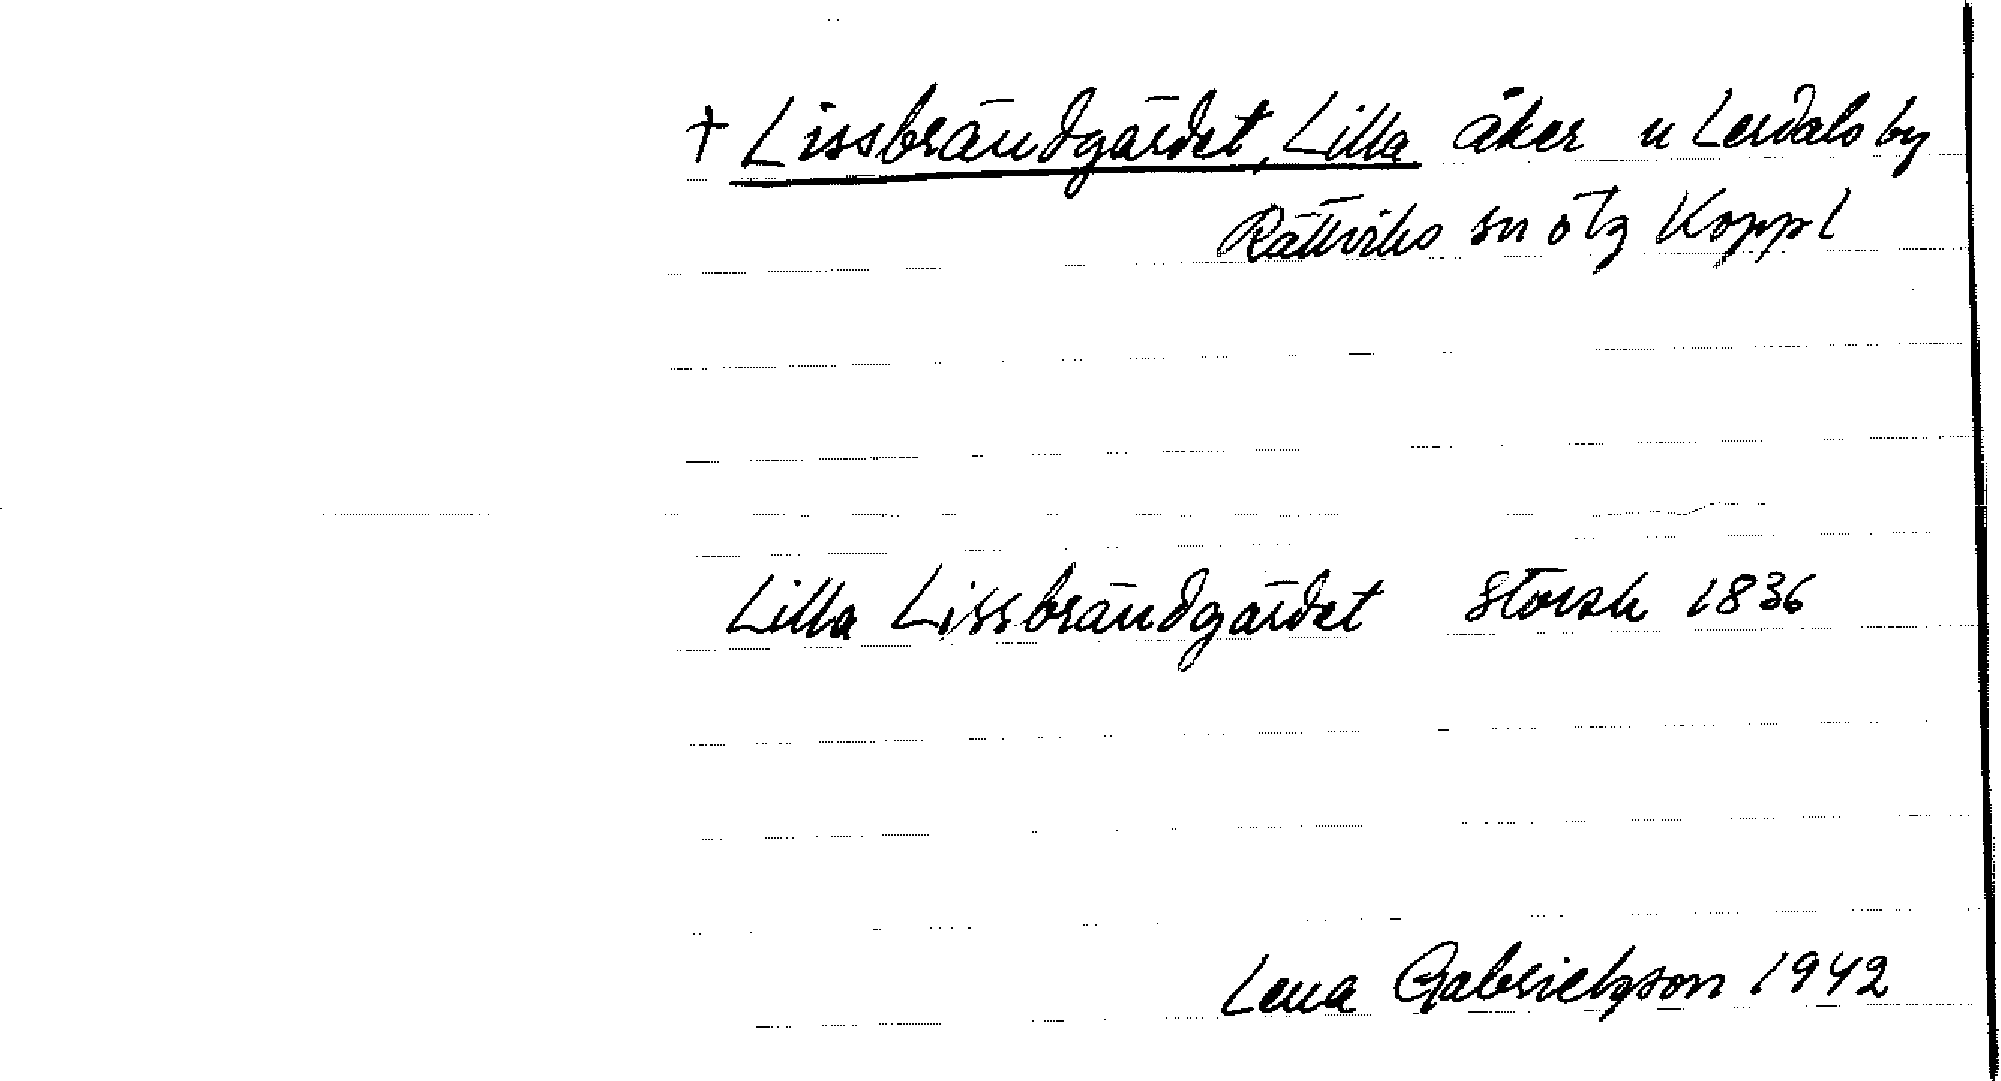 † Lissbrändgärdet, Lilla åker u Lerdals by
Rättviks sn ötg Koppl
Lilla Lissbrändgärdet Storsk 1836
Lena Gabrielsson 1942